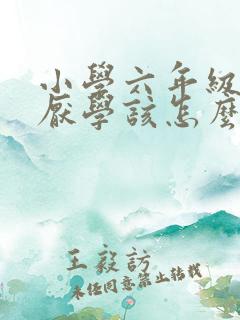 小學六年級
厭學該怎麼
王毅訪
未经同意禁止转载